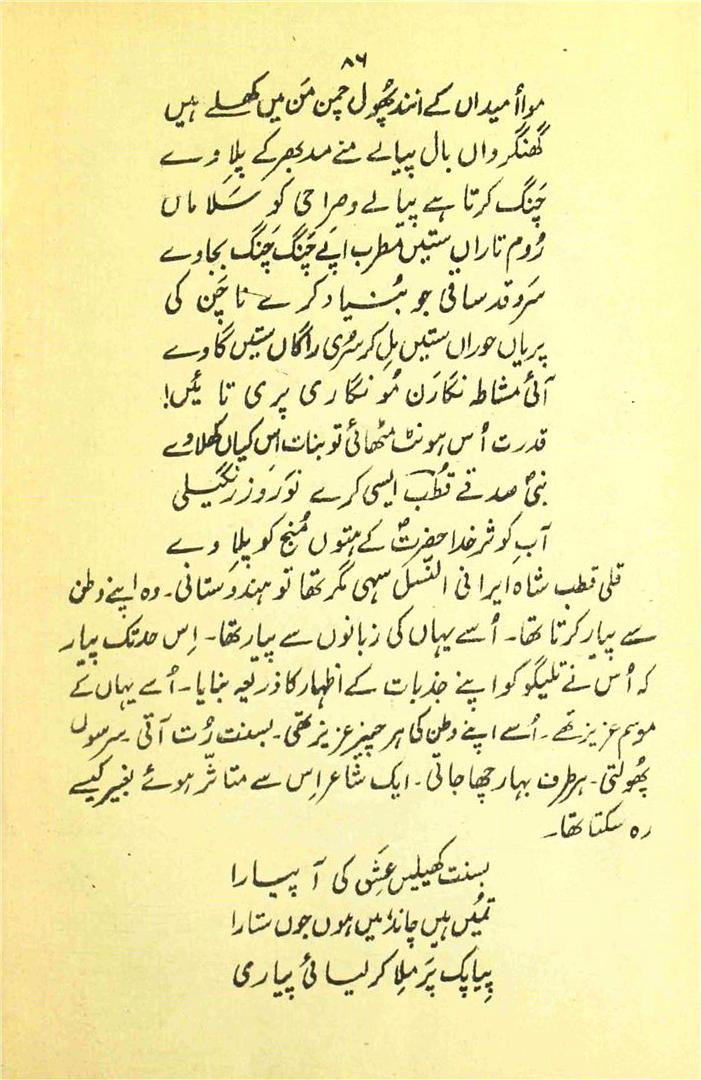 ۸۶
موا اُمیداں کے انند پھُول چمن مَن میں کھِلے ہیں
گھنگرواں بال پیالے منے مد بھر کے پلاوے
چَنگ کرتا ہے پیالے و صراحی کو سَلاماں
رُوم تاراں ستیں مطرب اپَے چَنگ چَنگ بجاوے
سَرو قد ساقی جو بُنیاد کرے ناچَن کی
پریاں حوراں ستیں مِل کر سُری راگاں ستیں گاوے
آئی مشاطہ نگارَن مُو نگاری پری تائیں!
قدرت اُس ہونٹ مٹھائی تو بنات اس کیاں کھلاوے
نبیؐ صدقے قطُب ایسی کرے نَو رَوز رنگیلی
آبِ کوثر خدا حضرتؐ کے ہتوں مُنج کو پلاوے
قلی قطب شاہ ایرانی النّسل سہی مگر تھا تو ہندوستانی۔ وہ اپنے وطن
سے پیار کرتا تھا۔ اُسے یہاں کی زبانوں سے پیار تھا۔ اِس حد تک پیار
کہ اُس نے تلیگو کو اپنے جذبات کے اظہار کا ذریعہ بنایا۔ اُسے یہاں کے
موسم عزیز تھے۔ اُسے اپنے وطن کی ہر چیز عزیز تھی۔ بسنت رُت آتی۔ سرسوں
پھُولتی۔ ہر طرف بہار چھا جاتی۔ ایک شاعر اِس سے متاثّر ہوئے بغیر کیسے
رہ سکتا تھا۔
بسنت کھیلیں عشق کی آ پیارا
تمُیں ہیں چاند میں ہوں جوں ستارا
پِیا پک پَر مِلا کر لیائی پیاری